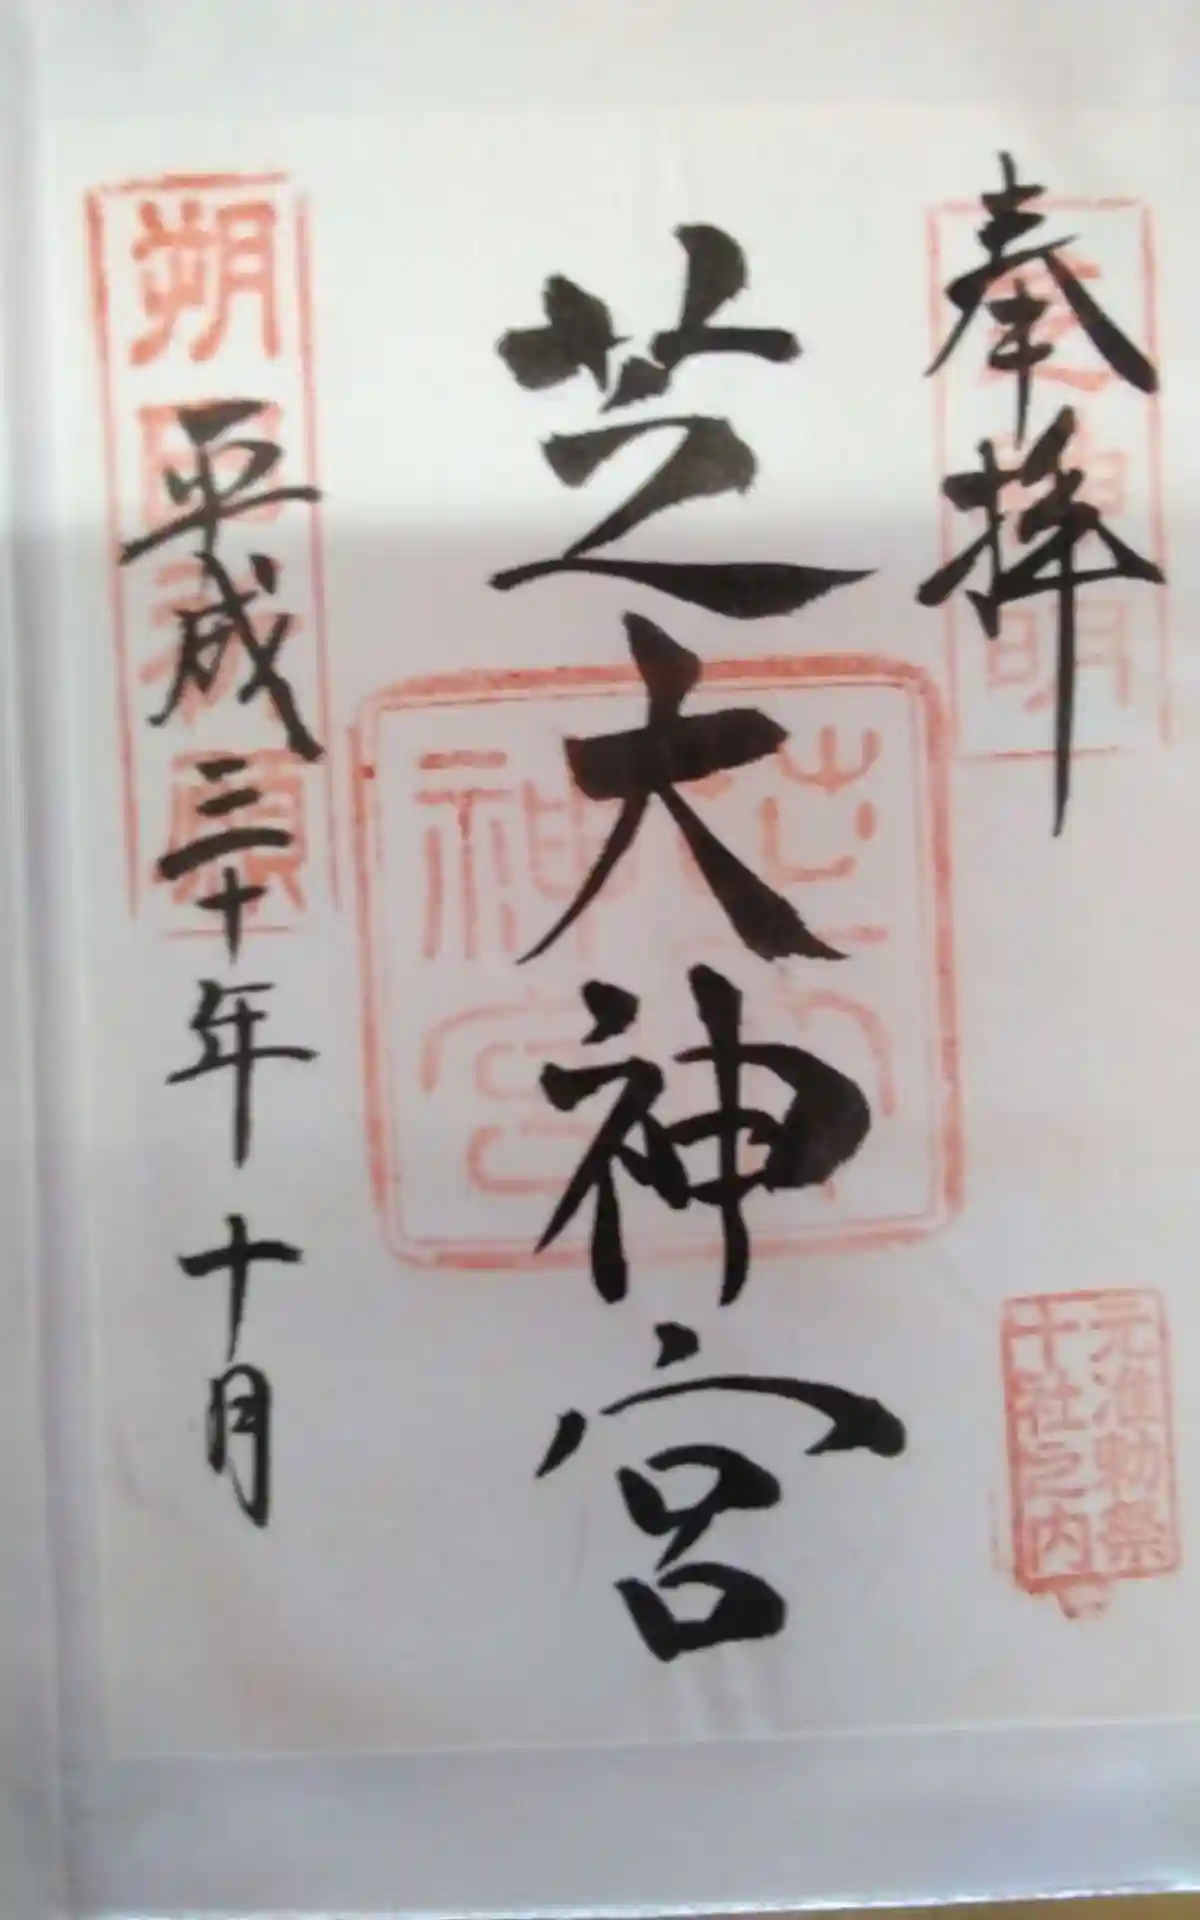 奉拝
芝神明
元准勅祭
十社之内
芝大神宮
芝大神宮
平成三十年十月
朔日祈願